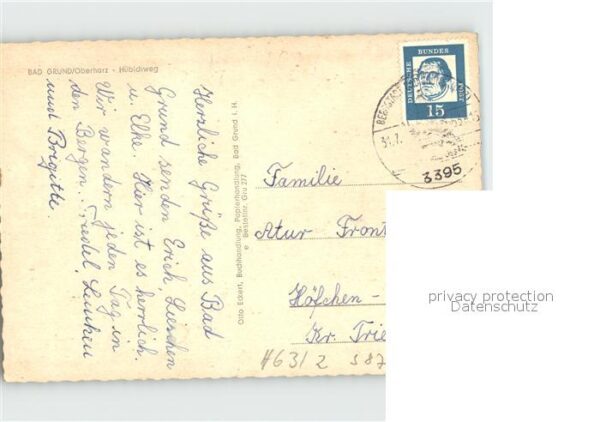 BAD GRUND/Oberharz - Hübichweg
Herzliche Grüße aus Bad
Grund senden Erich, Lieschen
u. Elke. Hier ist es herrlich.
Wir wandern jeden Tag in
den Bergen. Friedel,
und Brigitte.
Otto Eckert, Buchhandlung, Papierhandlung, Bad Grund i. H.
Bestellnr. Gru 277
DEUTSCHE BUNDES
15
31.7.
3395
Familie
Artur Front
Höfchen -
Kr. Trie
H631 2 587
privacy protection
Datenschutz